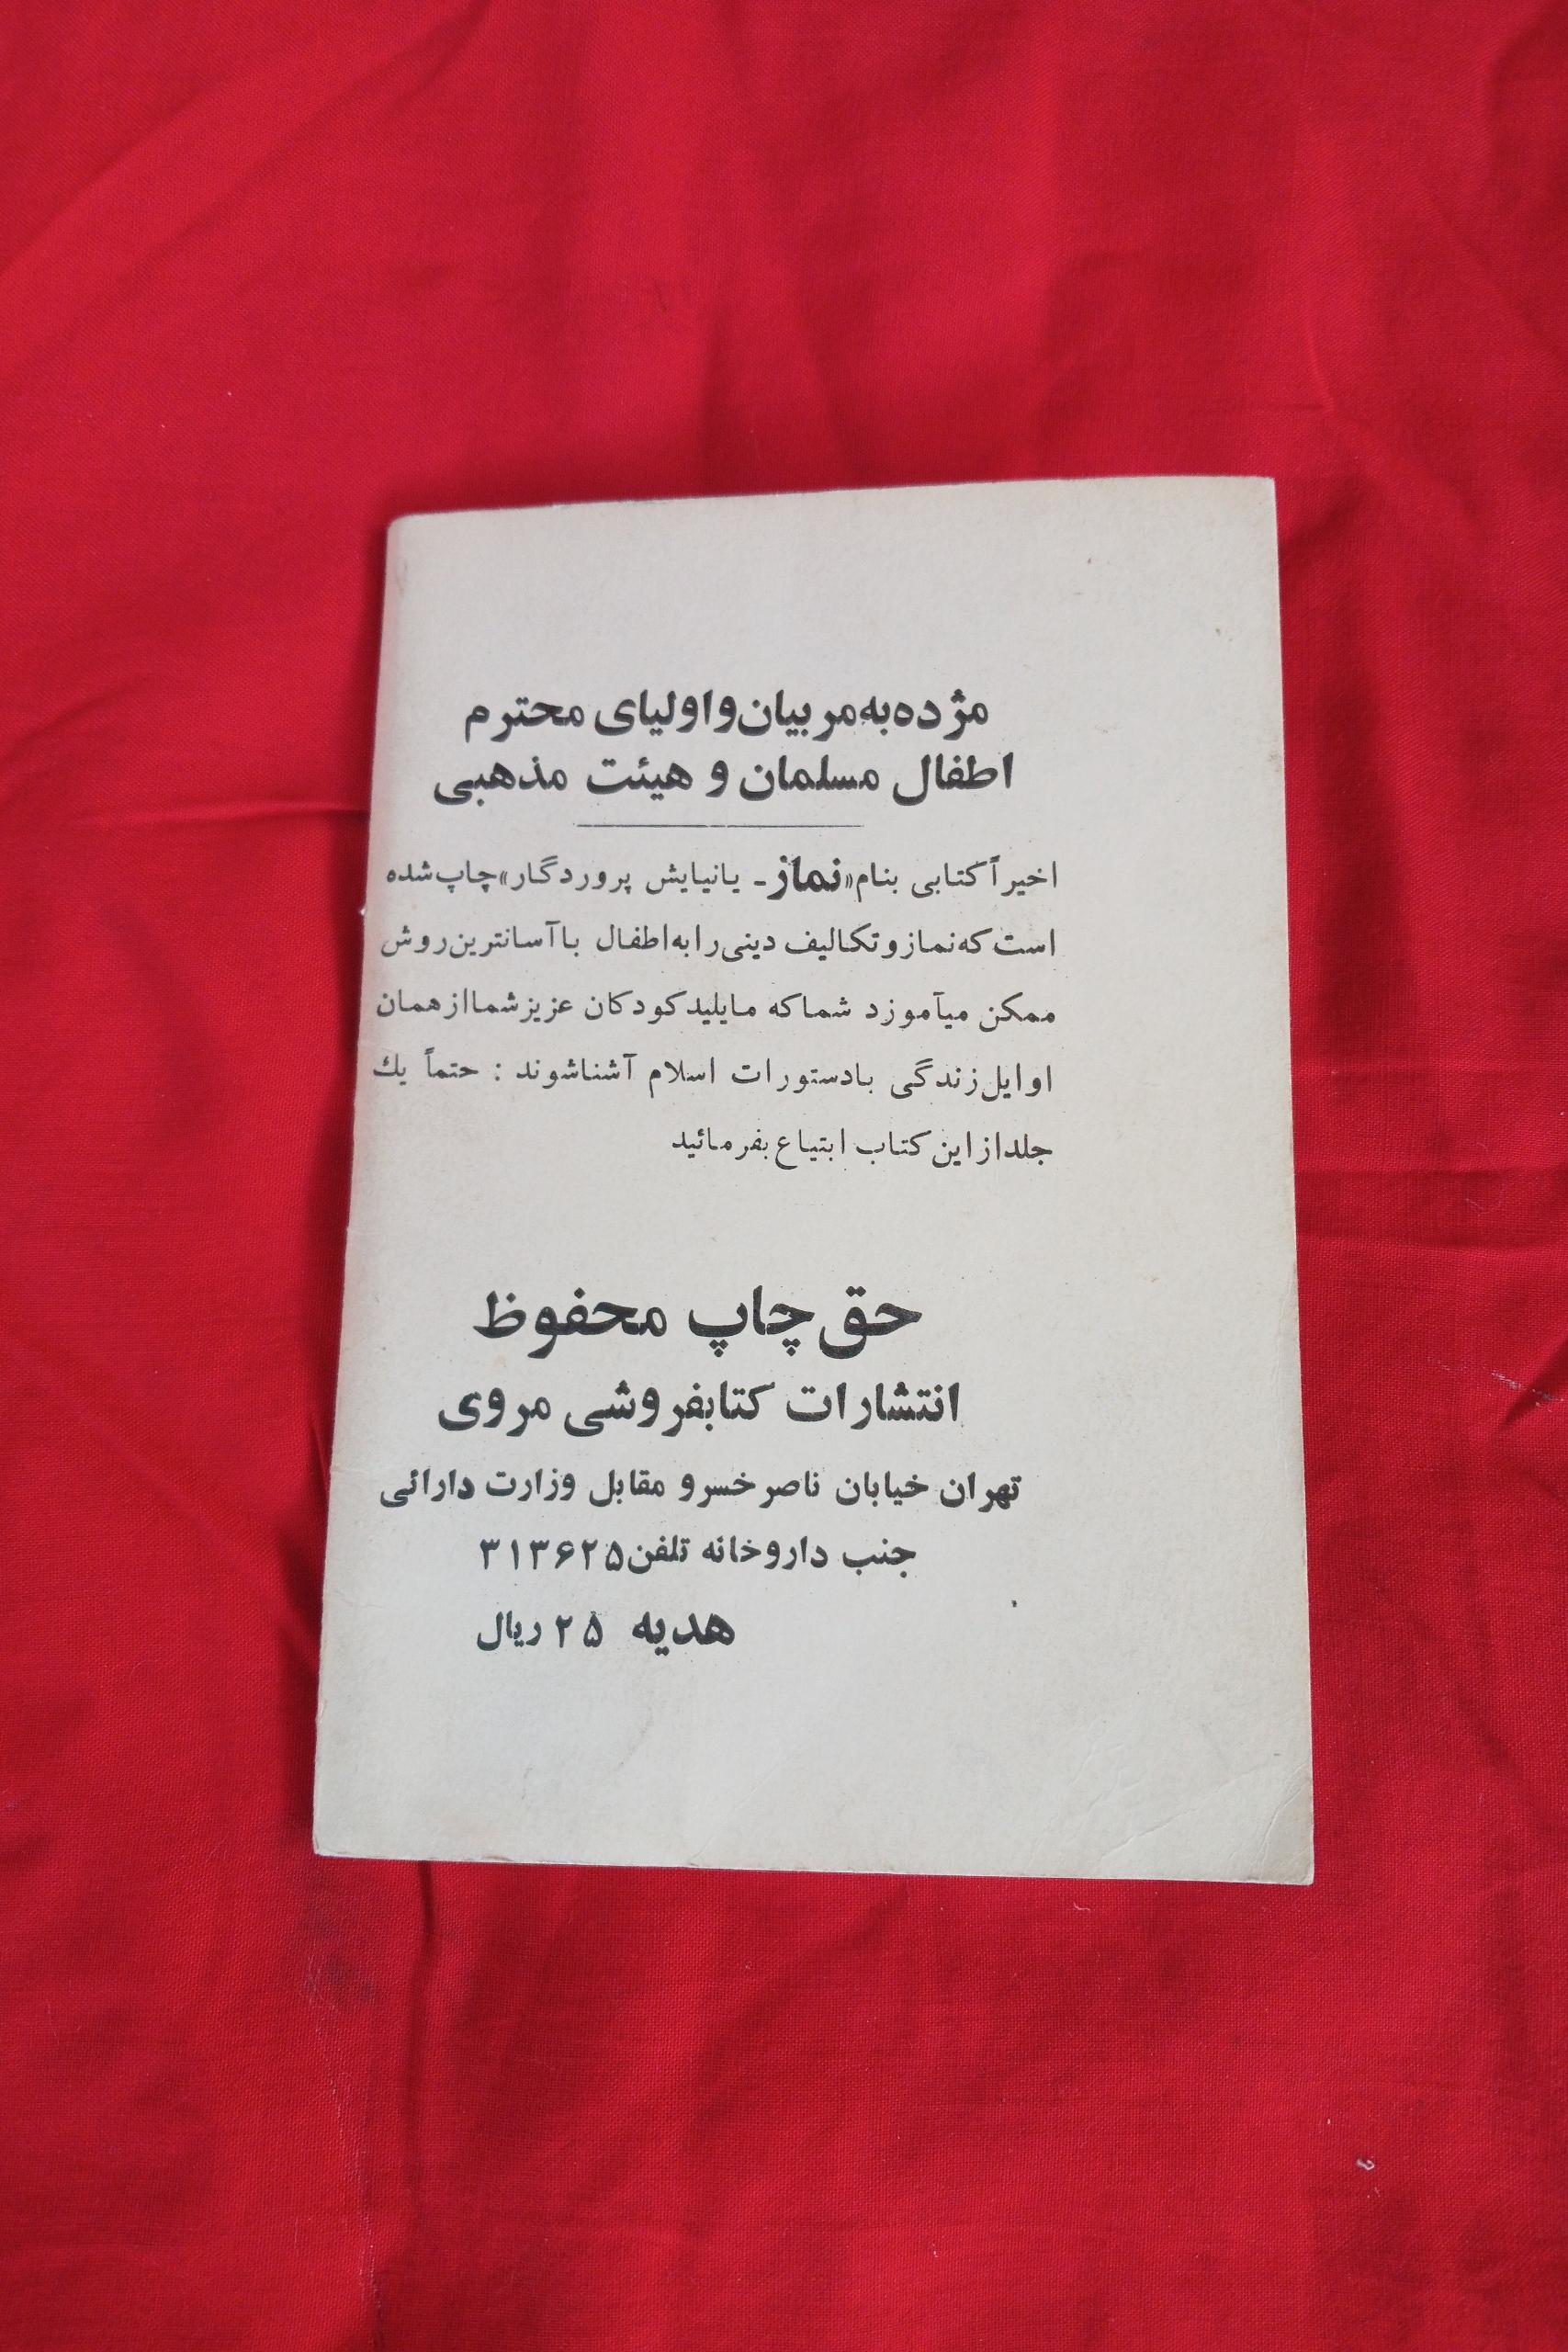 مژده به مربیان و اولیای محترم
اطفال مسلمان و هیئت مذهبی
اخیراً کتابی بنام «نماز - یا نیایش پروردگار» چاپ شده
است که نماز و تکالیف دینی را به اطفال با آسانترین روش
ممکن میآموزد شما که مایلید کودکان عزیز شما از همان
اوایل زندگی با دستورات اسلام آشنا شوند : حتماً یك
جلد از این کتاب ابتیاع بفرمائید
حق چاپ محفوظ
انتشارات کتابفروشی مروی
تهران خیابان ناصر خسرو مقابل وزارت دارائی
جنب داروخانه تلفن ۳۱۳۶۲۵
هدیه ۲۵ ریال